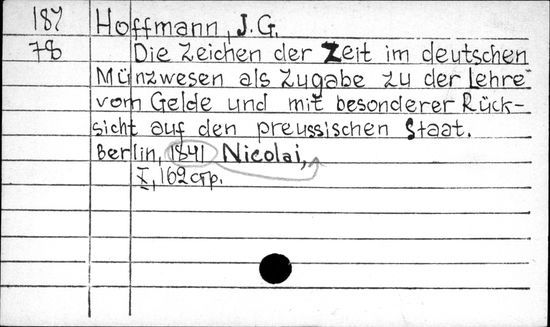 187 Hoffmann, J.G.
78 Die Zeichen der Zeit im deutschen
Münzwesen als Zugabe zu der Lehre
vom Gelde und mit besonderer Rück-
sicht auf den preussischen Staat.
Berlin, 1841 Nicolai,
X, 162 стр.